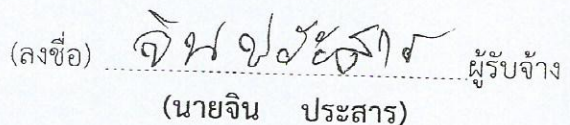 (ลงชื่อ) จิน ประสาร ผู้รับจ้าง
(นายจิน ประสาร)